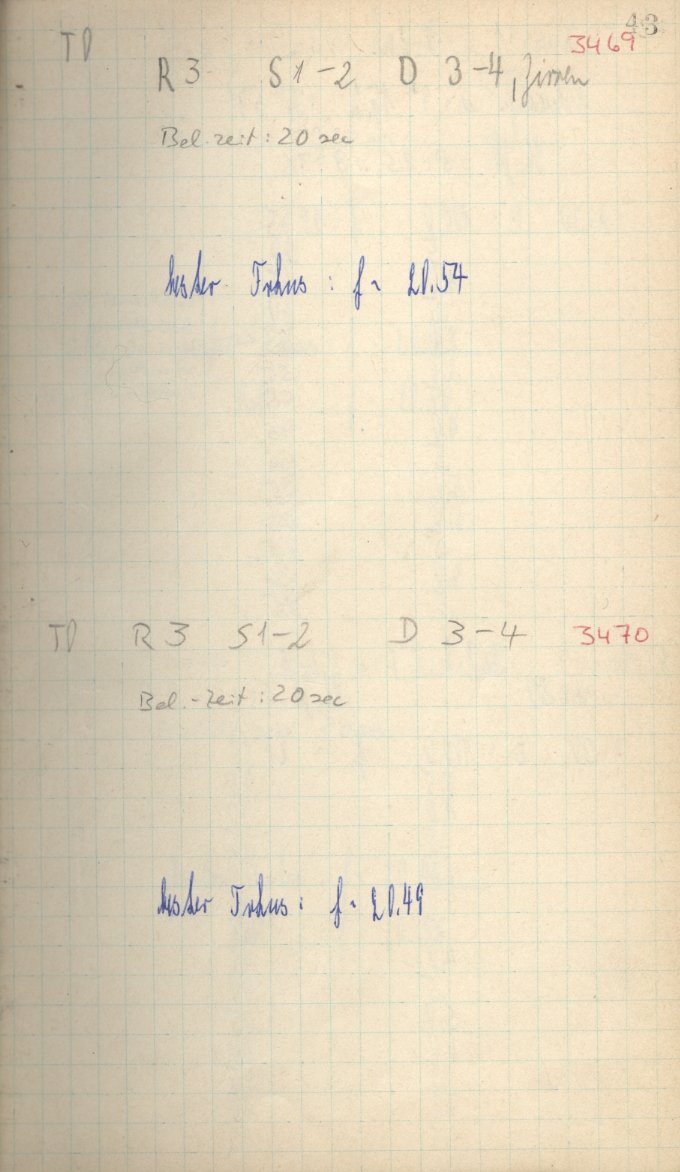 43
3469
TP R 3 S 1-2 D 3-4, Zirren
Bel. zeit: 20 sec
bester Fokus: f = 20.54
TP R 3 S 1-2 D 3-4 3470
Bel.-Zeit: 20 sec
bester Fokus: f = 20.49